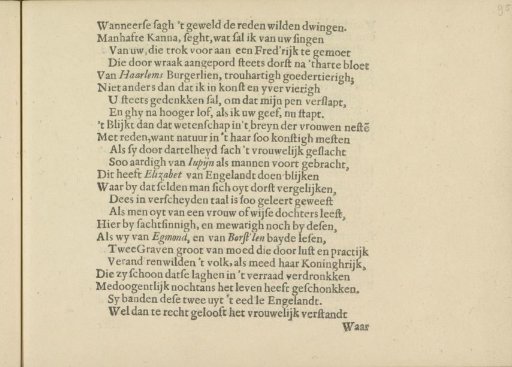 Wanneerse sagh 't geweld de reden wilden dwingen.
Manhafte Kanna, seght, wat sal ik van uw singen
Van uw, die trok voor aan een Fred'rijk te gemoet
Die door wraak aangepord steets dorst na 'tharte bloet
Van Haarlems Burgerlien, trouhartigh goedertierigh;
Niet anders dan dat ik in konst en yver vierigh
U steets gedenkken sal, om dat mijn pen verslapt,
En ghy na hooger lof, als ik uw geef, nu stapt.
't Blijkt dan dat wetenschap in 't breyn der vrouwen nestẽ
Met reden, want natuur in 't haar soo konstigh mesten
Als sy door dartelheyd sach 't vrouwelijk geslacht
Soo aardigh van Iupijn als mannen voort gebracht,
Dit heeft Elizabet van Engelandt doen blijken
Waar by dat selden man sich oyt dorst vergelijken,
Dees in verscheyden taal is soo geleert geweest
Als men oyt van een vrouw of wijse dochters leest,
Hier by sachtsinnigh, en mewarigh noch by desen,
Als wy van Egmond, en van Borst'len bayde lesen,
Twee Graven groot van moed die door lust en practijk
Verand renwilden 't volk, als meed haar Koninghrijk,
Die zy schoon datse laghen in 't verraad verdronkken
Medoogentlijk nochtans het leven heeft geschonkken.
Sy banden dese twee uyt 't eed le Engelandt.
Wel dan te recht gelooft het vrouwelijk verstandt
Waar